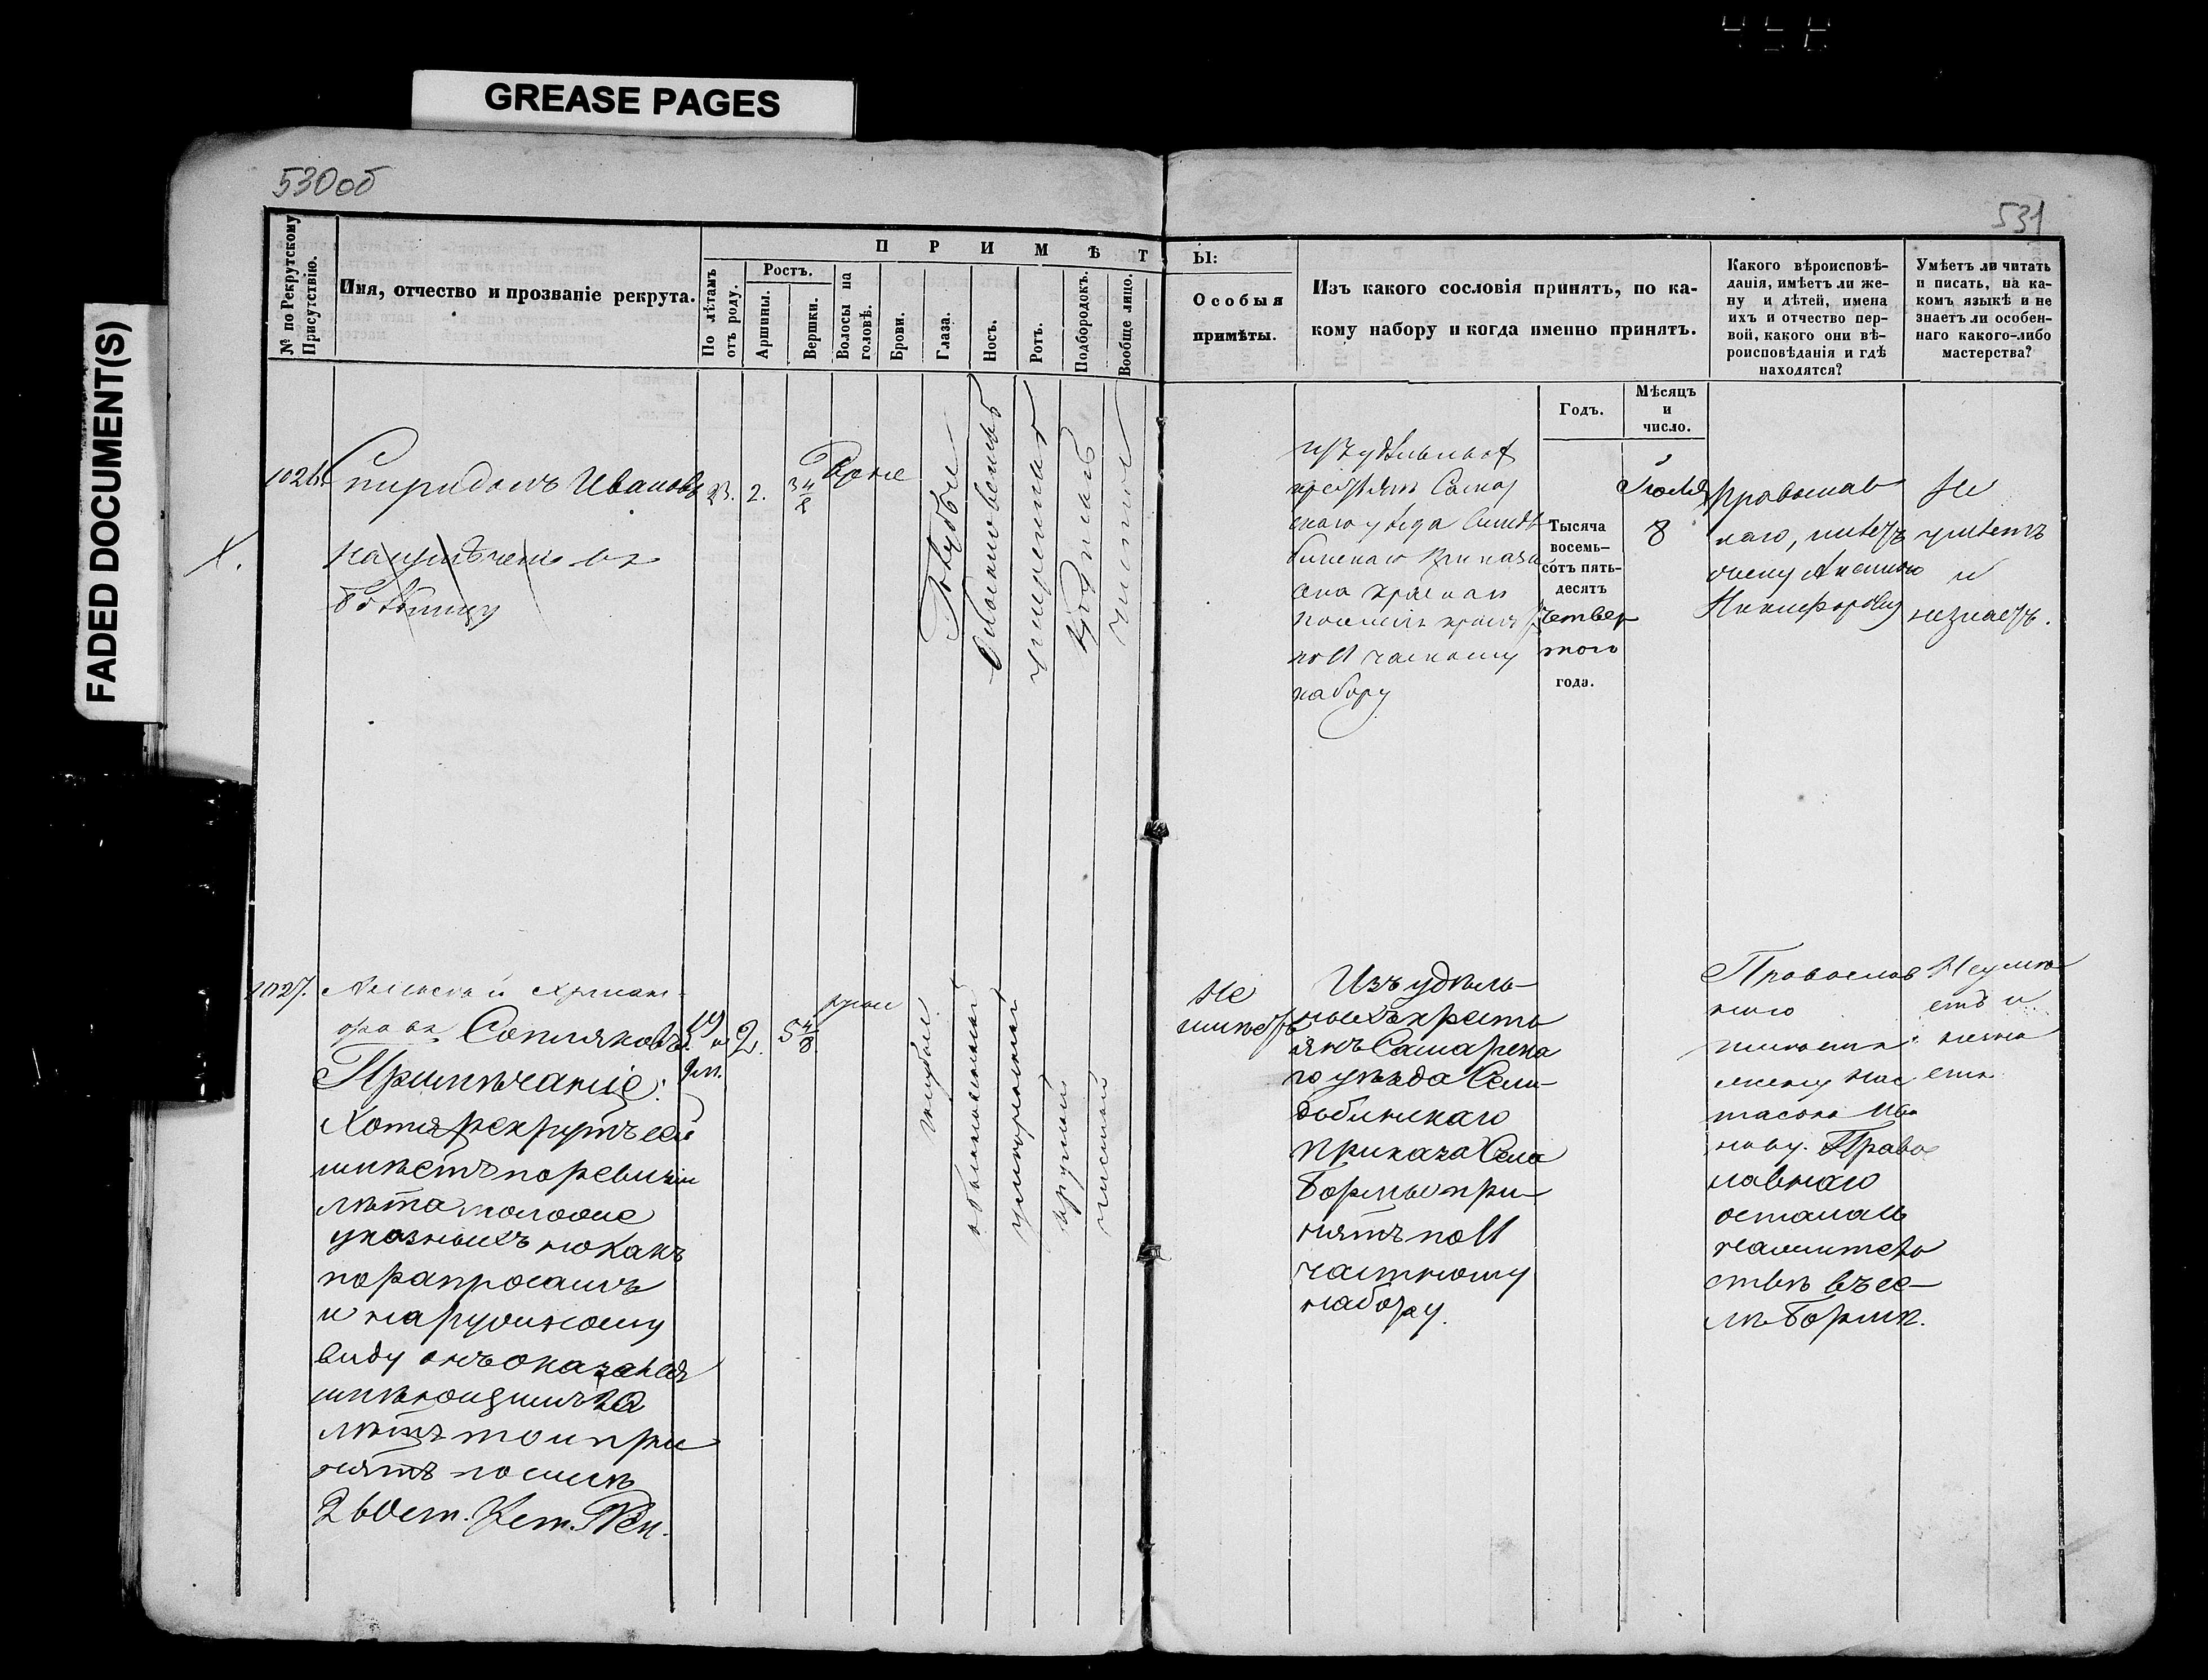 GREASE PAGES
FADED DOCUMENT(S)
530об
531
№ по Рекрутскому Присутствію.
Имя, отчество и прозваніе рекрута.
ПРИМѢТ
Ы:
По лѣтамъ отъ роду.
Ростъ.
Аршины.
Вершки.
Волосы на головѣ.
Брови.
Глаза.
Носъ.
Ротъ.
Подбородокъ.
Вообще лицо.
Особыя
примѣты.
Изъ какого сословія принятъ, по ка-
кому набору и когда именно принятъ.
Годъ.
Мѣсяцъ
и
число.
Какого вѣроисповѣ-
данія, имѣетъ ли же-
ну и дѣтей, имена
ихъ и отчество пер-
вой, какого они вѣ-
роисповѣданія и гдѣ
находятся?
Умѣетъ ли читать
и писать, на ка-
комъ языкѣ и не
знаетъ ли особен-
наго какого-либо
мастерства?
1026.
Спиридонъ Ивановъ
23.
2.
3 4/8
Русые
Голубые
Обыкновенный
умеренный
круглый
чистое
изъ удѣльныхъ
крестьянъ Самар
скаго уѣзда
приказа
села
по 11 частному
набору
Тысяча
восемь-
сотъ пять-
десятъ
четвер
таго
года.
Іюля
8
православ
наго, имѣетъ
жену Аксинью
Никифорову
Не
умѣетъ
и
незнаетъ.
1027.
Алексей
Сопляковъ
19
2.
5 4/8
русые
Примѣчаніе:
Хотя рекрутъ сей
имѣетъ по ревизіи
лѣта моложе
указныхъ но какъ
по распросамъ
и наружному
виду онъ оказался
имѣющимъ 20
лѣтъ то и при
нятъ
голубые
обыкновенный
умѣренный
круглый
чистый
Не
имѣетъ
Изъ удѣль-
ныхъ кресть
янъ Самарска
го уѣзда
приказа Села
Бормы при-
нятъ по 11
частному
набору.
Православ
наго
имѣетъ
жену Нас
тасью Ива
нову. Право
славнаго
осталась
на
ствѣ въ се-
лѣ Бормѣ.
Неумѣ
етъ и
незна
етъ